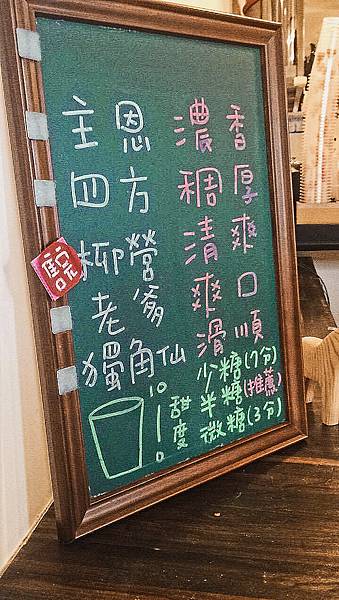 主恩 濃香
四方 稠厚
柳營 清爽
老爹 爽口
獨角仙 滑順
10
0
甜度
少糖(7分)
半糖(推薦)
微糖(3分)